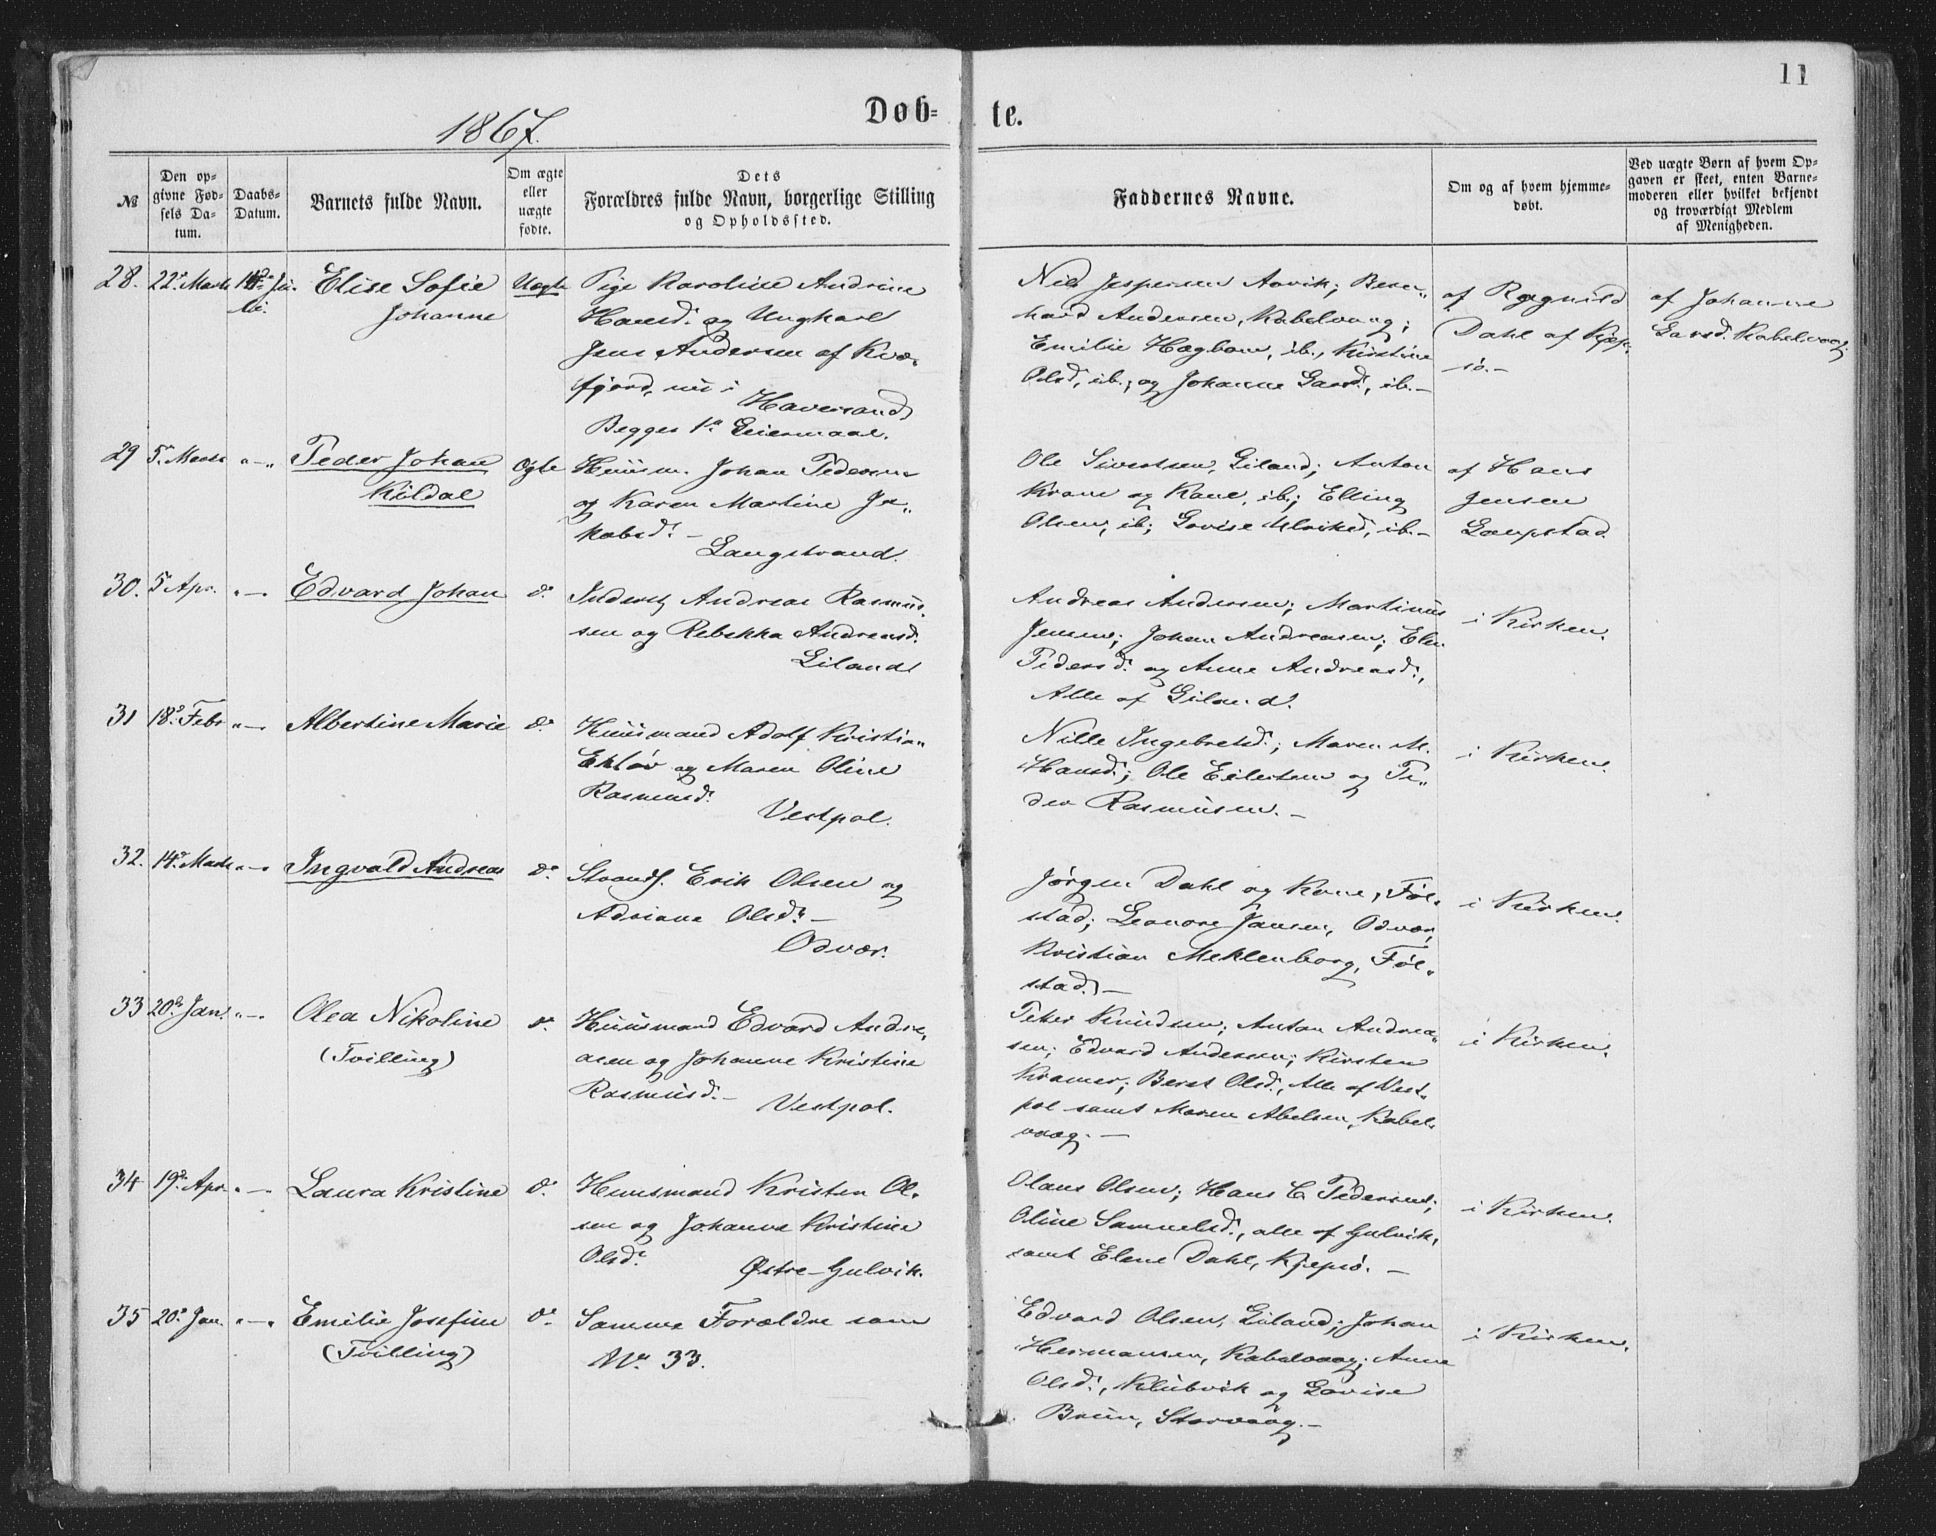 11
1867.
Døb-
te.
№
Den op-
givne Fød-
sels Da-
tum.
Daabs-
Datum.
Barnets fulde Navn.
Om ægte
eller
uægte
fødte.
Dets
Forældres fulde Navn, borgerlige Stilling
og Opholdssted.
Faddernes Navne.
Om og af hvem hjemme-
døbt.
Ved uægte Børn af hvem Op-
gaven er skeet, enten Barne-
moderen eller hvilket bekjendt
og troværdigt Medlem
af Menigheden.
28.
22. Marts
Elise Sofie
Johanne
Uægte
Pige Karoline Andrine
Hansd. og Ungkarl
Jens Andersen af Kvæ-
fjord, nu i
Haversand
Begges 1. Leiermaal.
Jespersen Aavik; Bern-
hard Andersen, Kabelvaag;
Emilie Hagbom, ib., Kirstine
Olsd., ib., og Johanne Larsd., ib.-
af Ragnild
Dahl af Kjep-
sø.-
af Johanne
Larsd. Kabelvaag.
29
5. Marts
"-"
Peder Johan
Kildal
Ægte
Huusm. Johan Pedersen
og Karen Martine Ja-
kobsd. -
Langstrand.
Ole Sivertsen, Liland; Anton
Kram og Kone, ib.; Elling
Olsen, ib; Lovise Ulriksd., ib.-
af Hans
Jensen
Laupstad.
30.
5 Apr.
"-
Edvard Johan
do.
Inderst Andreas Rasmus-
sen og Rebekka Andreasd.
Liland
Andreas Andersen; Martinus
Jensen; Johan Andreasen; Elen
Pedersd. og Anne Andreasd.,
Alle af Liland.
i Kirken.
31
18. Febr
"-
Albertine Marie
do.
Huusmand Adolf Kristian
Ekløv og Maren Oline
Rasmusd.
Vestpol.
Nille Ingebretsd.; Maren M.
Hansd.; Ole Eilertsen og Pe-
der Rasmusen. -
i Kirken.
32.
14. Marts
"-
Ingvald Andreas
do.
Strands. Erik Olsen og
Adriane Olsd. -
Odvær.
Jørgen Dahl og Kone, Føl-
stad; Leonore Jansen, Odvær,
Kristian Meklenborg, Føl-
stad. -
i Kirken.
33
20. Jan.
"-
Olea Nikoline
(Tvilling)
do.
Huusmand Edvard Andre-
asen og Johanne Kristine
Rasmusd. -
Vestpol.
Peter Knudsen; Anton Andrea-
sen; Edvard Andersen; Kirsten
Kramer; Beret Olsd., Alle af Vest-
pol samt Maren Abelsen, Kabel-
vaag. -
i Kirken.
34
19. Apr.
"-
Laura Kristine
do.
Huusmand Kristen Ol-
sen og Johanne Kristine
Olsd.
Østre-Gulvik.
Olaus Olsen; Hans C Pedersen;
Oline Samuelsd., alle af Gulvik,
samt Elene Dahl, Kjepsø. -
i Kirken.
35
20. Jan.
"-"
Emilie Josefine
(Tvilling)
do.
Samme Forældre som
No. 33.
Edvard Olsen, Liland; Johan
Hermansen, Kabelvaag; Anne
Olsd., Klubvik og Lovise
Bruun, Storvaag. -
i Kirken.